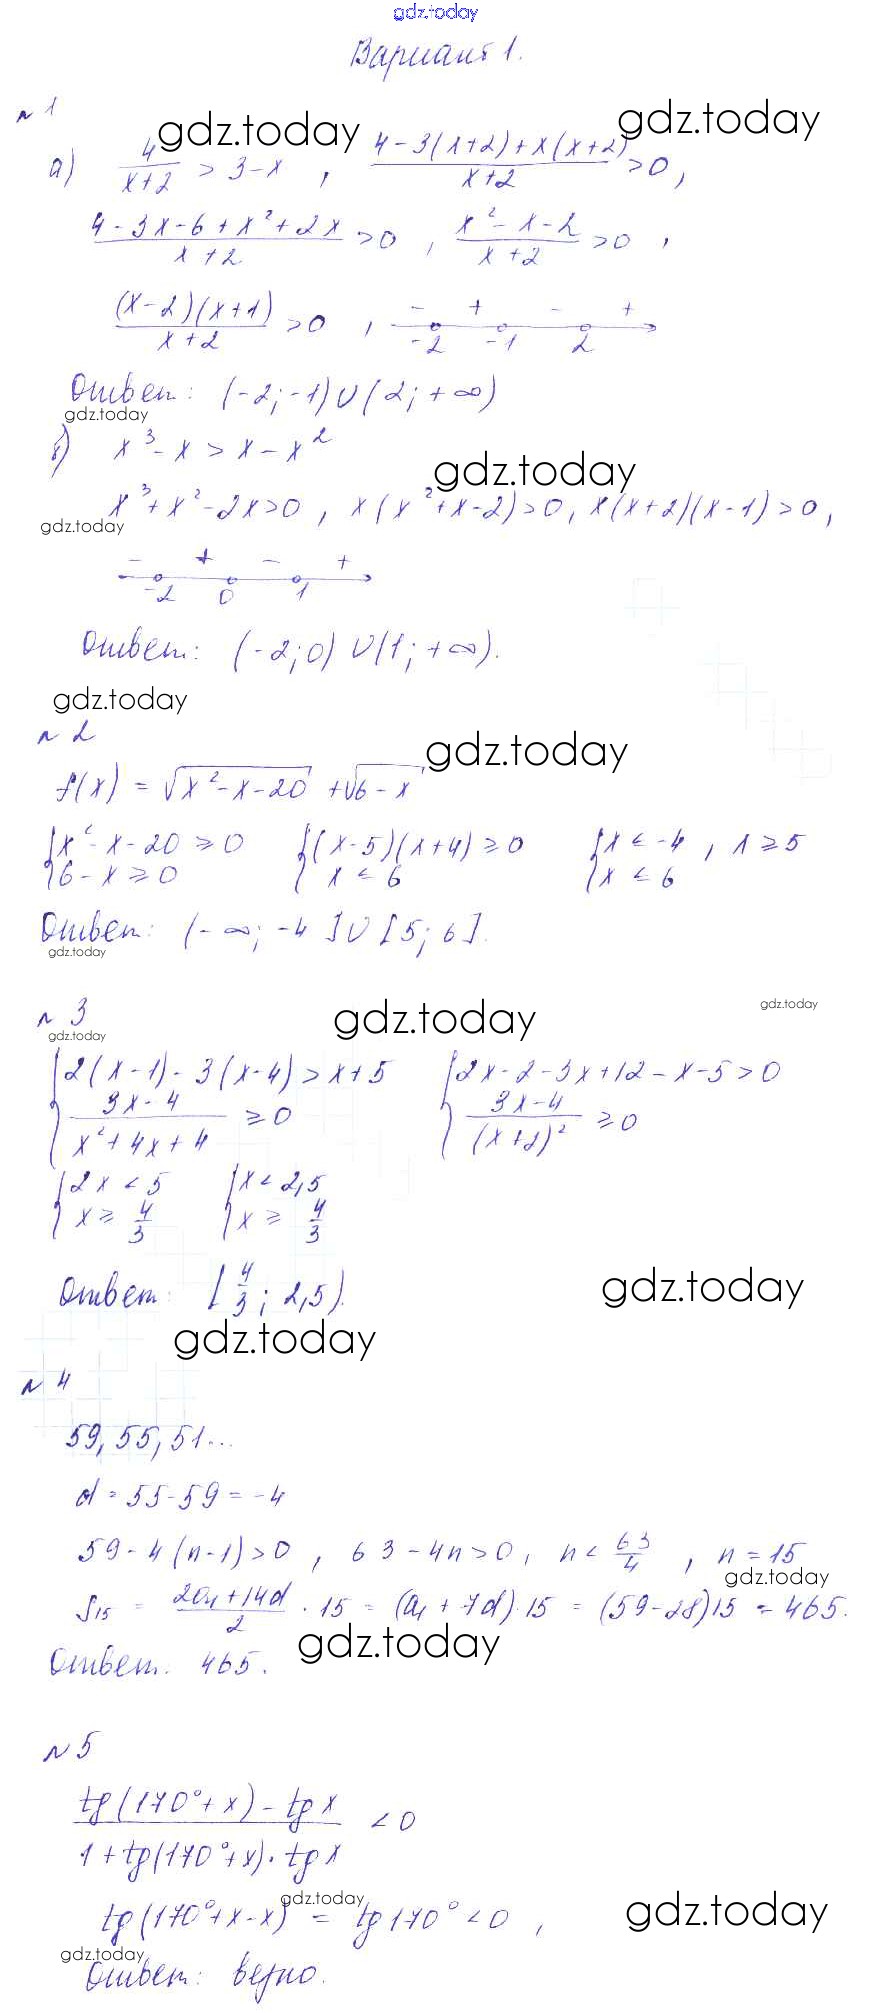 gdz.today
Вариант 1.
№ 1
gdz.today gdz.today
а) 4/(x+2) > 3-x , (4-3(x+2)+x(x+2))/(x+2) > 0 ,
(4-3x-6+x²+2x)/(x+2) > 0 , (x²-x-2)/(x+2) > 0 ,
((x-2)(x+1))/(x+2) > 0 , - + - +
-2 -1 2
Ответ: (-2; -1) ∪ (2; +∞)
gdz.today
б) x³-x > x-x²
gdz.today
x³+x²-2x>0 , x(x²+x-2)>0, x(x+2)(x-1)>0,
gdz.today
- + - +
-2 0 1
Ответ: (-2; 0) ∪ (1; +∞).
gdz.today
№ 2
gdz.today
f(x) = √(x²-x-20) + √(6-x)
{x²-x-20 ≥ 0 {(x-5)(x+4) ≥ 0 {x ≤ -4 , x ≥ 5
6-x ≥ 0 x ≤ 6 x ≤ 6
Ответ: (-∞; -4] ∪ [5; 6].
gdz.today
gdz.today
№ 3
gdz.today
gdz.today
{2(x-1)-3(x-4) > x+5 {2x-2-3x+12-x-5>0
(3x-4)/(x²+4x+4) ≥ 0 (3x-4)/(x+2)² ≥ 0
{2x < 5 {x < 2,5
x ≥ 4/3 x ≥ 4/3
Ответ: [4/3; 2,5).
gdz.today
gdz.today
№ 4
59, 55, 51...
d = 55-59 = -4
59-4(n-1)>0 , 63-4n>0, n < 63/4 , n = 15
gdz.today
S₁₅ = (2a₁+14d)/2 · 15 = (a₁+7d)·15 = (59-28)15 = 465.
gdz.today
Ответ: 465.
№ 5
(tg(170°+x)-tg x)/(1+tg(170°+x)·tg x) < 0
gdz.today
tg(170°+x-x) = tg 170° < 0 ,
gdz.today
gdz.today
Ответ: верно.